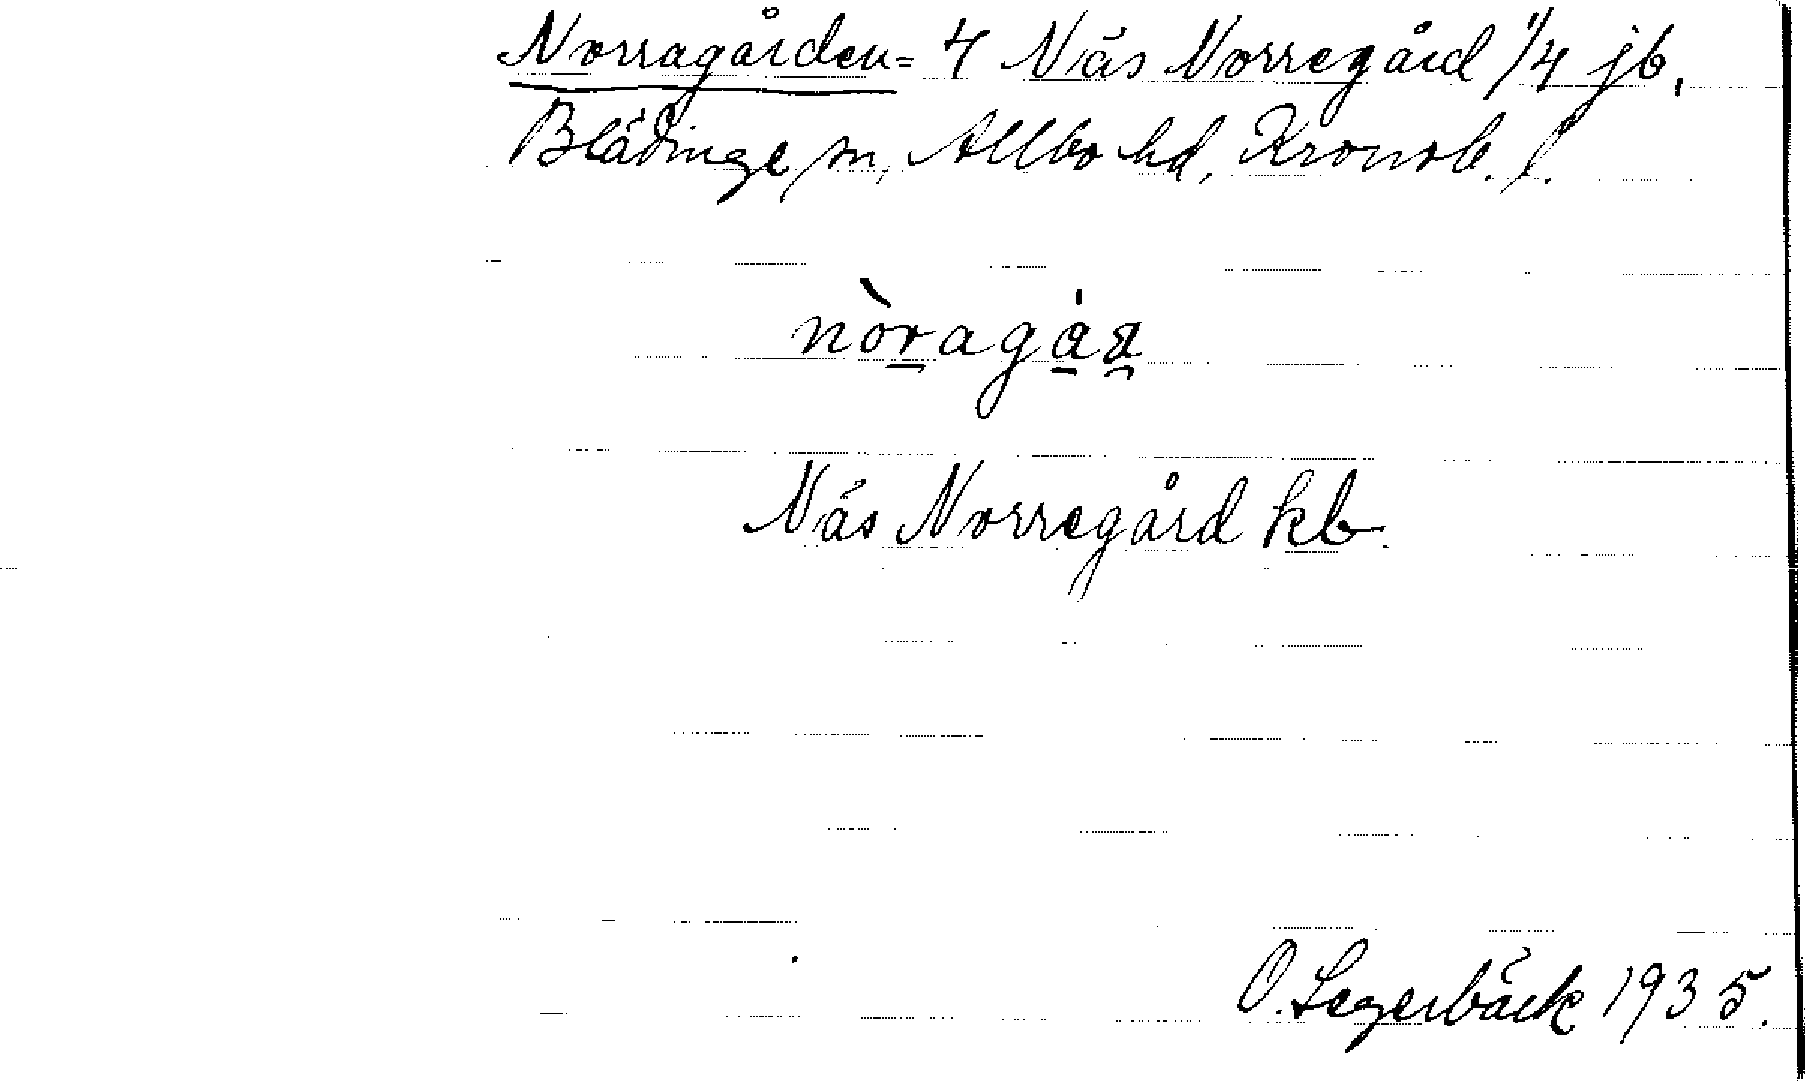 Norragården = 4 Näs Norregård 1/4 jb.
Blädinge sn, Allbo hd, Kronob. l.
nòragáa
Näs Norregård kb.
O. Segerbäck 1935.